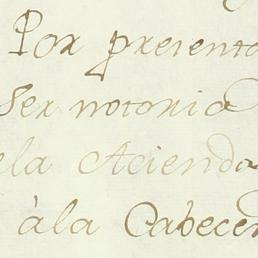 Por presenta
Ser notoria
ela Aciendo
àla Cabecer